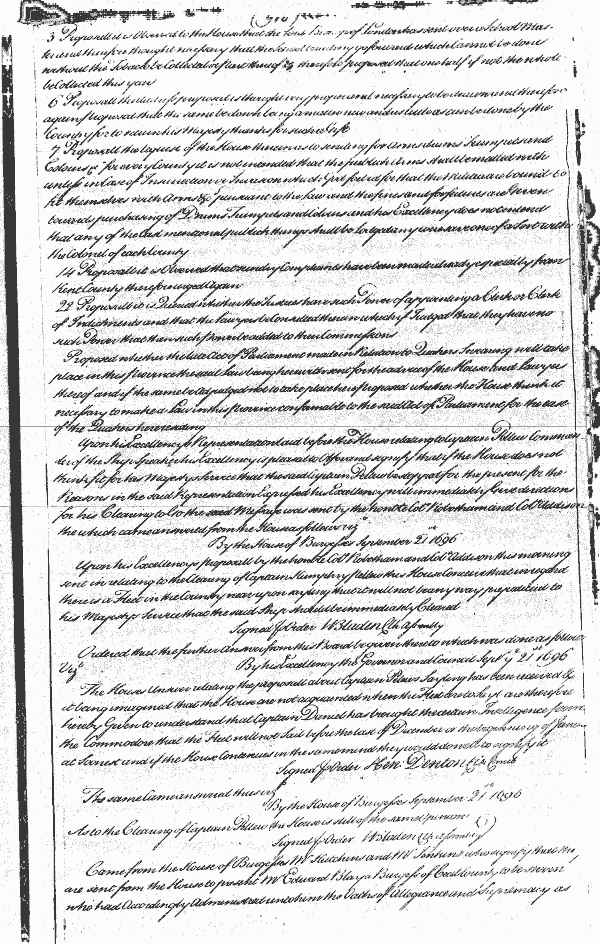 3 Proposall it is Observed to the House that the Lord Bishop of London has sent over a School Mas-
ter and therefore thought necessary that the School
without the Tobacco be Collected therefore proposed that one half if not the whole
be Collected this year
6 Proposall the Address proposed is thought very proper and necessary to be drawn and therefore
again proposed that the same be done it being a matter new and as little as can be done by the
Country for to return his Majesty thanks for such a Gift
7 Proposall the layeus of the House their answer to sending for Arms drums Trumpets and
Colours &c for every County it is not intended that the publick Arms shall be medled with
unless in Case of Insurrection or Invasion which God forbid for that the Militia are bound to
fit themselves with Arms &c pursuant to the Law and the fines and forfeitures are given
towards purchasing of Drums Trumpets and Colours and his Excellency does not intend
that any of the last mentioned publick things shall be lodged any where or one of a sort with
the Colonel of each County
14 Proposall it is Observed that sundry Complaints have been made already especially from
Kent County therefore urged again
22 Proposall it is Queried whether the Justices have such Power of appointing a Clerk or Clerks
of Indictments and that the Lawyers be Consulted therein which if Judged that they have no
such Power that then such Power be added to their Commissions
Proposed whether the late Act of Parliament made in Relation to Quakers Swearing will take
place in this Province the said Law being herewith sent for the advice of the House and Lawyers
thereof and if the same be adjudged not to take place here proposed whether the House think it
necessary to make a Law in this Province conformable to the said Act of Parliament for the ease
of the Quakers here residing
Upon his Excellencys Representation laid before the House relating to Captain Pellew Comman-
der of the Ship Speaker his Excellency is pleased to Offer and signify that if the House does not
think fit for his Majestys Service that the said Captain Pelew be stopt for the present for the
Reasons in the said Representation Expressed his Excellency will immediately Give directions
for his Clearing to Go the said Message was sent by the honble Coll Robotham and Coll Addison
the which came answered from the House as follows vizt
By the House of Burgesses September 21st 1696
Upon his Excellencys proposall by the honble Coll Robotham and Coll Addison this morning
sent in relating to the Clearing of Captain Humphry Pellew this House Conceive that in regard
there is a Fleet in the Country near upon sayling that it will not be any way prejudicial to
his Majestys Service that the said Ship should be immediately Cleared
Signed p Order W Bladen Clk Assembly
Ordered that the further Answer from this Board be given thereto which was done as follows
Vizt By his Excellency the Governor and Council Septr ye 21st 1696
The House Answer relating the proposall about Captain Pelews Sayling has been received &
it being imagined that the House are not acquainted when the Fleet are to Sayl are therefore
hereby Given to understand that Captain Daniel has brought the certain Intelligence from
the Commodore that the Fleet will not Sail before the last of December or the beginning of Janu-
at Soonest and if the House Continue is in the same mind they would do well to signify it
Signed p Order Hen: Denton Clk Concil
The same Came answered thus vizt
By the House of Burgesses September 21st 1696
As to the Clearing of Captain Pellew the House is still of the same Opinion
Signed p Order W Bladen Clk Assembly
Came from the House of Burgesses Mr Hutchins and Mr who signify that they
are sent from the House to present Mr Edward Blay a Burgess of Cecil County to be sworn
who had accordingly Administred unto him the Oaths of Allegiance and Supremacy as